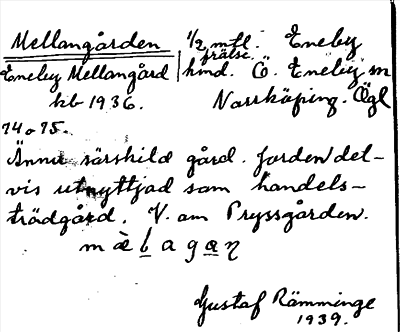 Mellangården 1/2 mtl. frälse. Eneby
Eneby Mellangård hmd. Ö. Eneby sn
kb 1936. Norrköping. Ögl
74 o 75.
Ännu särskild gård. Jorden del-
vis utnyttjad som handels-
trädgård. V. om Pryssgården.
Gustaf Rämminge
1939.